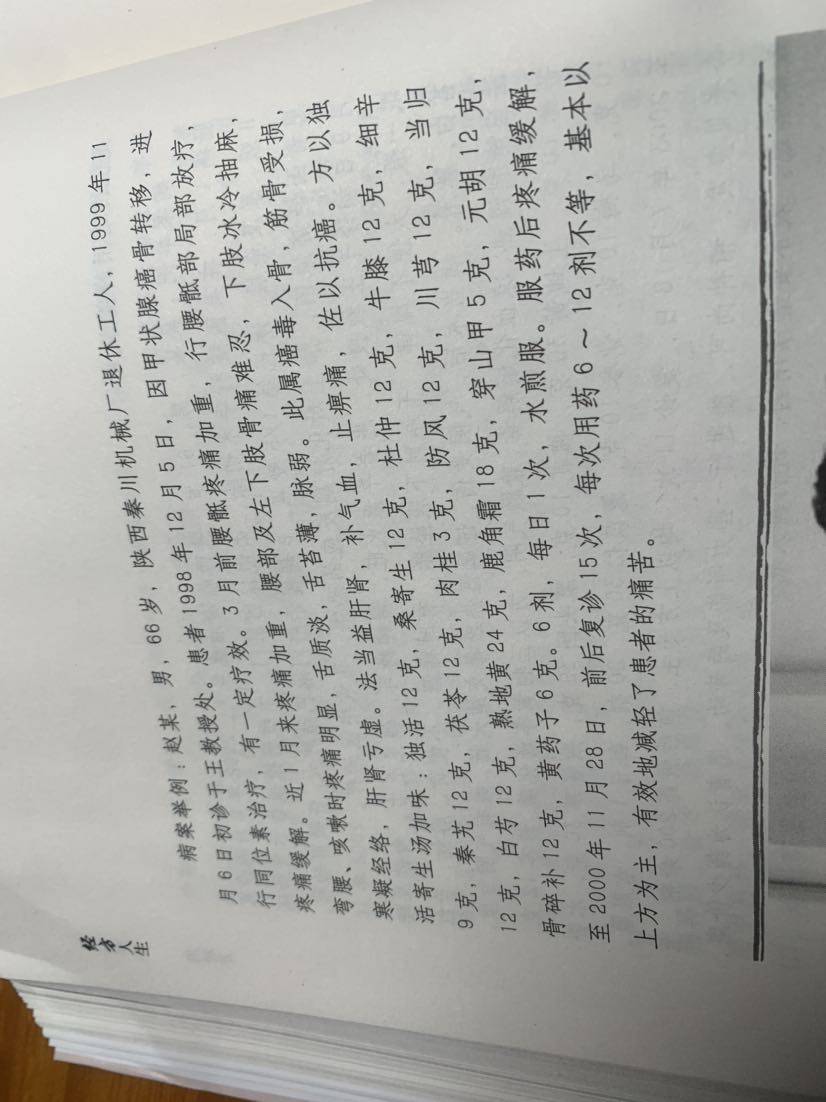 经方
人生
病案举例：赵某，男，66岁，陕西秦川机械厂退休工人，1999年11
月6日初诊于王教授处。患者1998年12月5日，因甲状腺癌骨转移，进
行同位素治疗，有一定疗效。3月前腰骶疼痛加重，行腰骶部局部放疗，
疼痛缓解。近1月来疼痛加重，腰部及左下肢骨痛难忍，下肢冰冷抽麻，
弯腰、咳嗽时疼痛明显，舌质淡，舌苔薄，脉弱。此属癌毒入骨，筋骨受损，
寒凝经络，肝肾亏虚。法当益肝肾，补气血，止痹痛，佐以抗癌。方以独
活寄生汤加味：独活12克，桑寄生12克，杜仲12克，牛膝12克，细辛
9克，秦艽12克，茯苓12克，肉桂3克，防风12克，川芎12克，当归
12克，白芍12克，熟地黄24克，鹿角霜18克，穿山甲5克，元胡12克，
骨碎补12克，黄药子6克。6剂，每日1次，水煎服。服药后疼痛缓解，
至2000年11月28日，前后复诊15次，每次用药6～12剂不等，基本以
上方为主，有效地减轻了患者的痛苦。